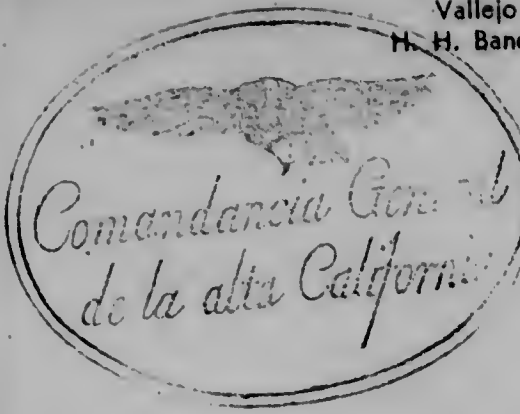 Vallejo
H. H. Banc
Comandancia General
de la alta California